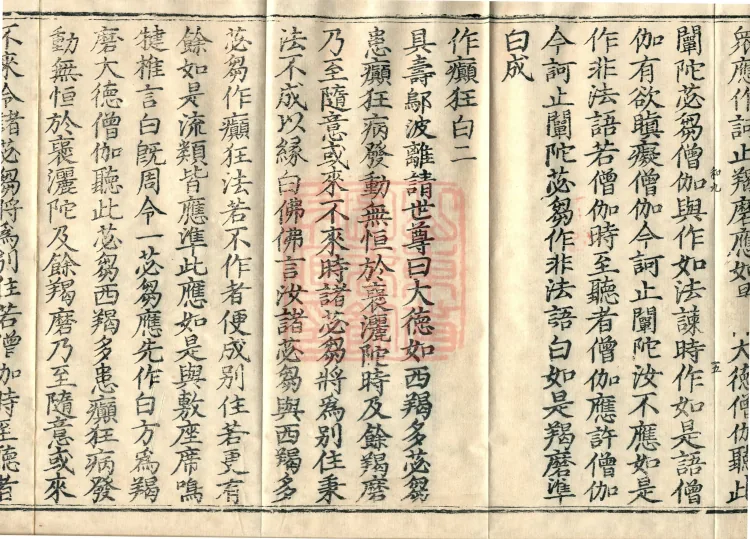 衆應作訶止羯磨應如是 大德僧伽聽此
闡陀苾芻僧伽與作如法諫時作如是語僧
伽有欲瞋癡僧伽今訶止闡陀汝不應如是
作非法語若僧伽時至聽者僧伽應許僧伽
今訶止闡陀苾芻作非法語白如是羯磨準
白成
作癲狂白二
具壽鄔波離請世尊曰大德如西羯多苾芻
患癲狂病發動無恒於褒灑陀時及餘羯磨
乃至隨意或來不來時諸苾芻將為別住秉
法不成以緣白佛佛言汝諸苾芻與西羯多
苾芻作癲狂法若不作者便成別住若更有
餘如是流類皆應準此應如是與敷座席鳴
揵椎言白既周令一苾芻應先作白方為羯
磨大德僧伽聽此苾芻西羯多患癲狂病發
動無恒於褒灑陀及餘羯磨乃至隨意或來
不來令諸苾芻將為別住若僧伽時至聽者